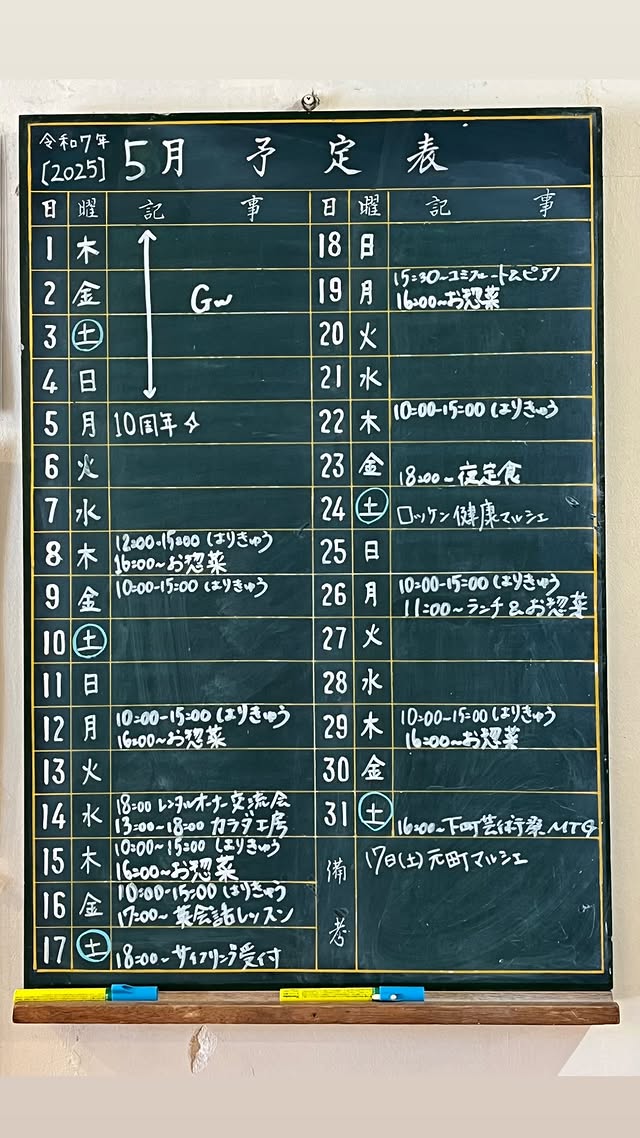 令和7年
[2025] 5月 予定表
日 曜 記事
1 木
GW
2 金
3 土
4 日
5 月 10周年
6 火
7 水
8 木 12:00-15:00 はりきゅう
16:00~お惣菜
9 金 10:00-15:00 はりきゅう
10 土
11 日
12 月 10:00-15:00 はりきゅう
16:00~お惣菜
13 火
14 水 18:00 レンタルオーナー交流会
13:00~18:00 カラダ工房
15 木 10:00~15:00 はりきゅう
16:00~お惣菜
16 金 10:00-15:00 はりきゅう
17:00~ 英会話レッスン
17 土 18:00~ 受付
日 曜 記事
18 日
19 月 15:30~コミュニート&ピアノ
16:00~お惣菜
20 火
21 水
22 木 10:00-15:00 はりきゅう
23 金 18:00~夜定食
24 土 ロッケン健康マルシェ
25 日
26 月 10:00-15:00 はりきゅう
11:00~ランチ&お惣菜
27 火
28 水
29 木 10:00-15:00 はりきゅう
16:00~お惣菜
30 金
31 土 16:00~下町芸術祭MTG
備考 17日(土)元町マルシェ